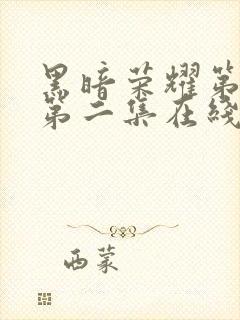 黑暗荣耀第
第二集在线
西蒙